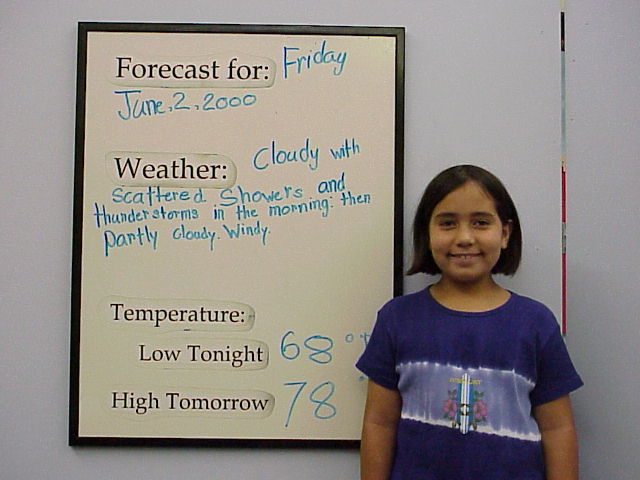 Forecast for: Friday
June, 2, 2000
Weather: Cloudy with
scattered Showers and
thunderstorms in the morning. then
partly cloudy. Windy.
Temperature:
Low Tonight 68°
High Tomorrow 78°